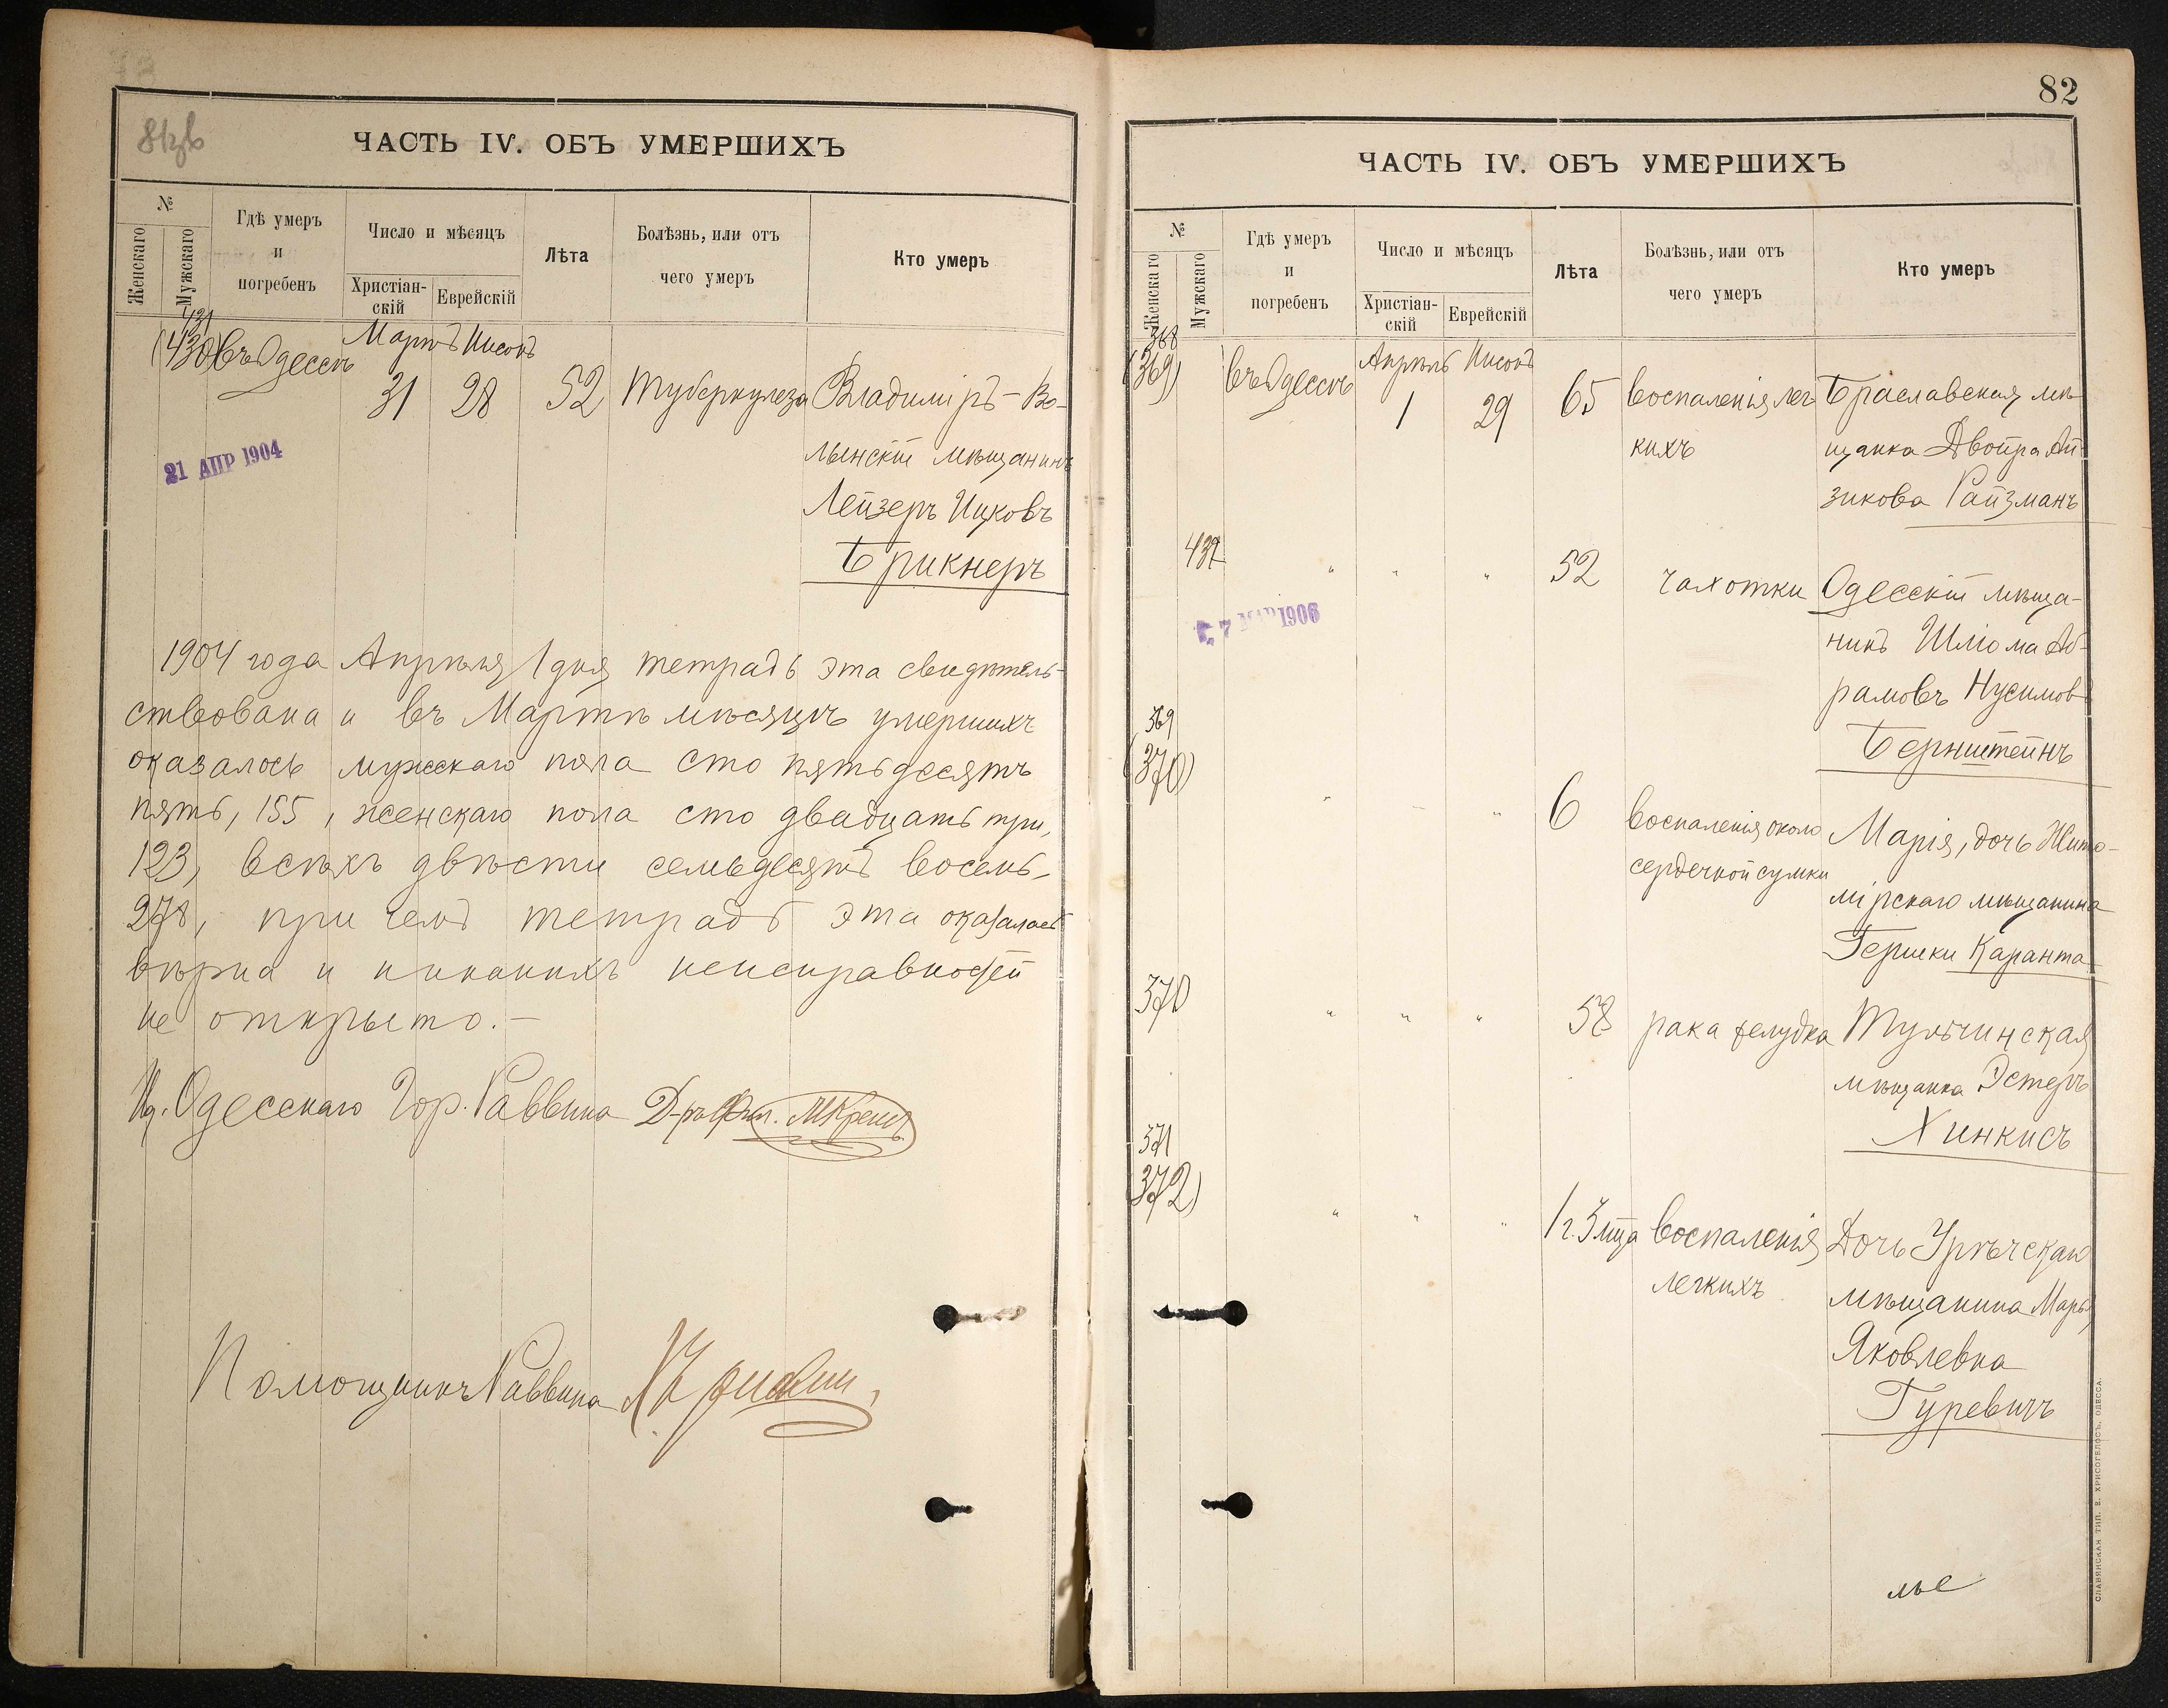 81об
ЧАСТЬ IV. ОБЪ УМЕРШИХЪ
№
Женскаго
Мужскаго
Гдѣ умеръ
и
погребенъ
Число и мѣсяцъ
Христіан-
скій
Еврейскій
Лѣта
Болѣзнь, или отъ
чего умеръ
Кто умеръ
431
(430) въ Одессѣ
Мартъ Нисонъ
31 28 52 Туберкулеза Владиміръ-Во-
лынскій мѣщанинъ
Лейзеръ Ицковъ
Брикнеръ
21 АПР 1904
1904 года Апрѣля 1 дня тетрадь эта свидѣтель-
ствована и въ Мартѣ мѣсяцѣ умершихъ
оказалось мужскаго пола сто пятьдесятъ
пять, 155, женскаго пола сто двадцать три,
123, всѣхъ двѣсти семьдесятъ восемь-
278, при чемъ тетрадь эта оказалась
вѣрна и никакихъ неисправностей
не открыто.-
И.д. Одесскаго Гор. Раввина Д-ръ Фил.
Помощникъ Раввина
82
ЧАСТЬ IV. ОБЪ УМЕРШИХЪ
№
Женскаго
Мужскаго
Гдѣ умеръ
и
погребенъ
Число и мѣсяцъ
Христіан-
скій
Еврейскій
Лѣта
Болѣзнь, или отъ
чего умеръ
Кто умеръ
368
(369) въ Одессѣ Апрѣль Нисонъ
1 29 65 воспаленія лег- Браславская мѣ-
кихъ щанка Двойра Ай-
зикова Райзманъ
432 " " " 52 чахотки Одесскій мѣща-
нинъ Шліома Аб-
рамовъ Нусимовъ
Бернштейнъ
1906
369
(370) " " " 6 воспаленія около Марія, дочь Жито-
сердечной сумки мірскаго мѣщанина
Гершки Каранта
370 " " " 58 рака желудка Тульчинская
мѣщанка Эстеръ
Хинкисъ
371
(372) " " " 1 г. 3 мца воспаленія Дочь Урѣчскаго
легкихъ мѣщанина Марья
Яковлевна
Гуревичъ
СЛАВЯНСКАЯ ТИП. Е. ХРИСОГЕЛОСЪ, ОДЕССА.